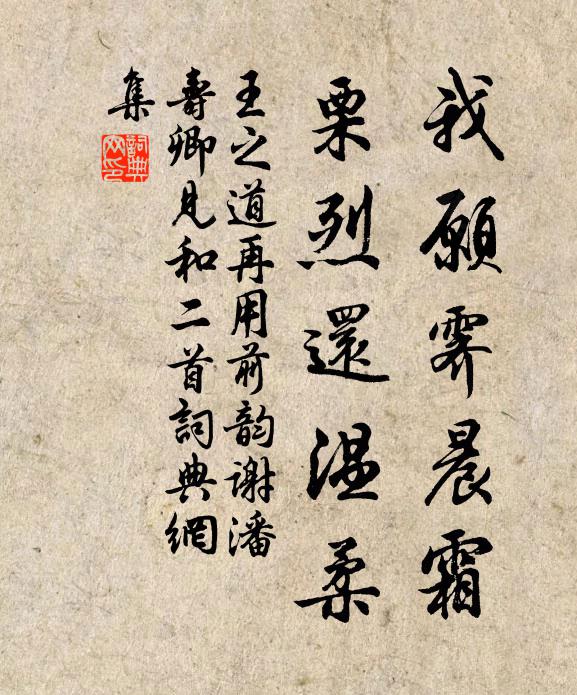 我願霽晨霜
栗烈還溫柔
王之道再用前韵謝潘
壽卿見和二首詞典網
集
詞典網印